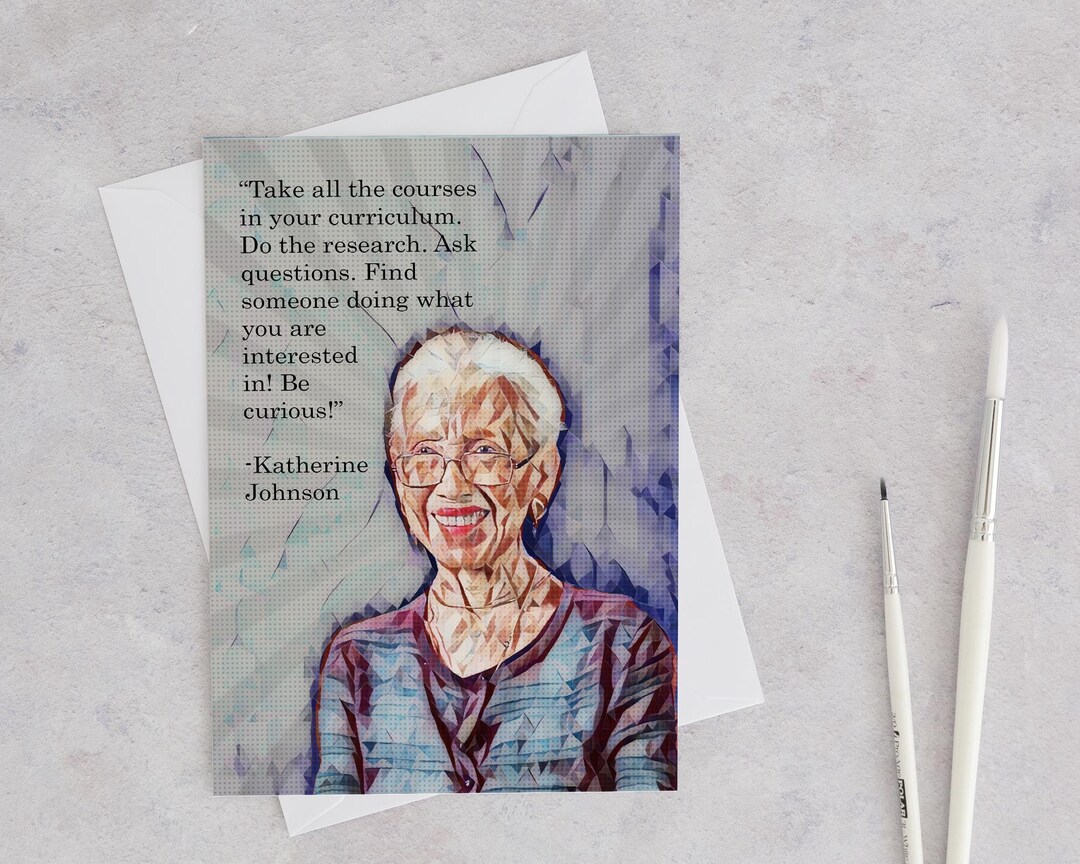 “Take all the courses
in your curriculum.
Do the research. Ask
questions. Find
someone doing what
you are
interested
in! Be
curious!”
-Katherine
Johnson